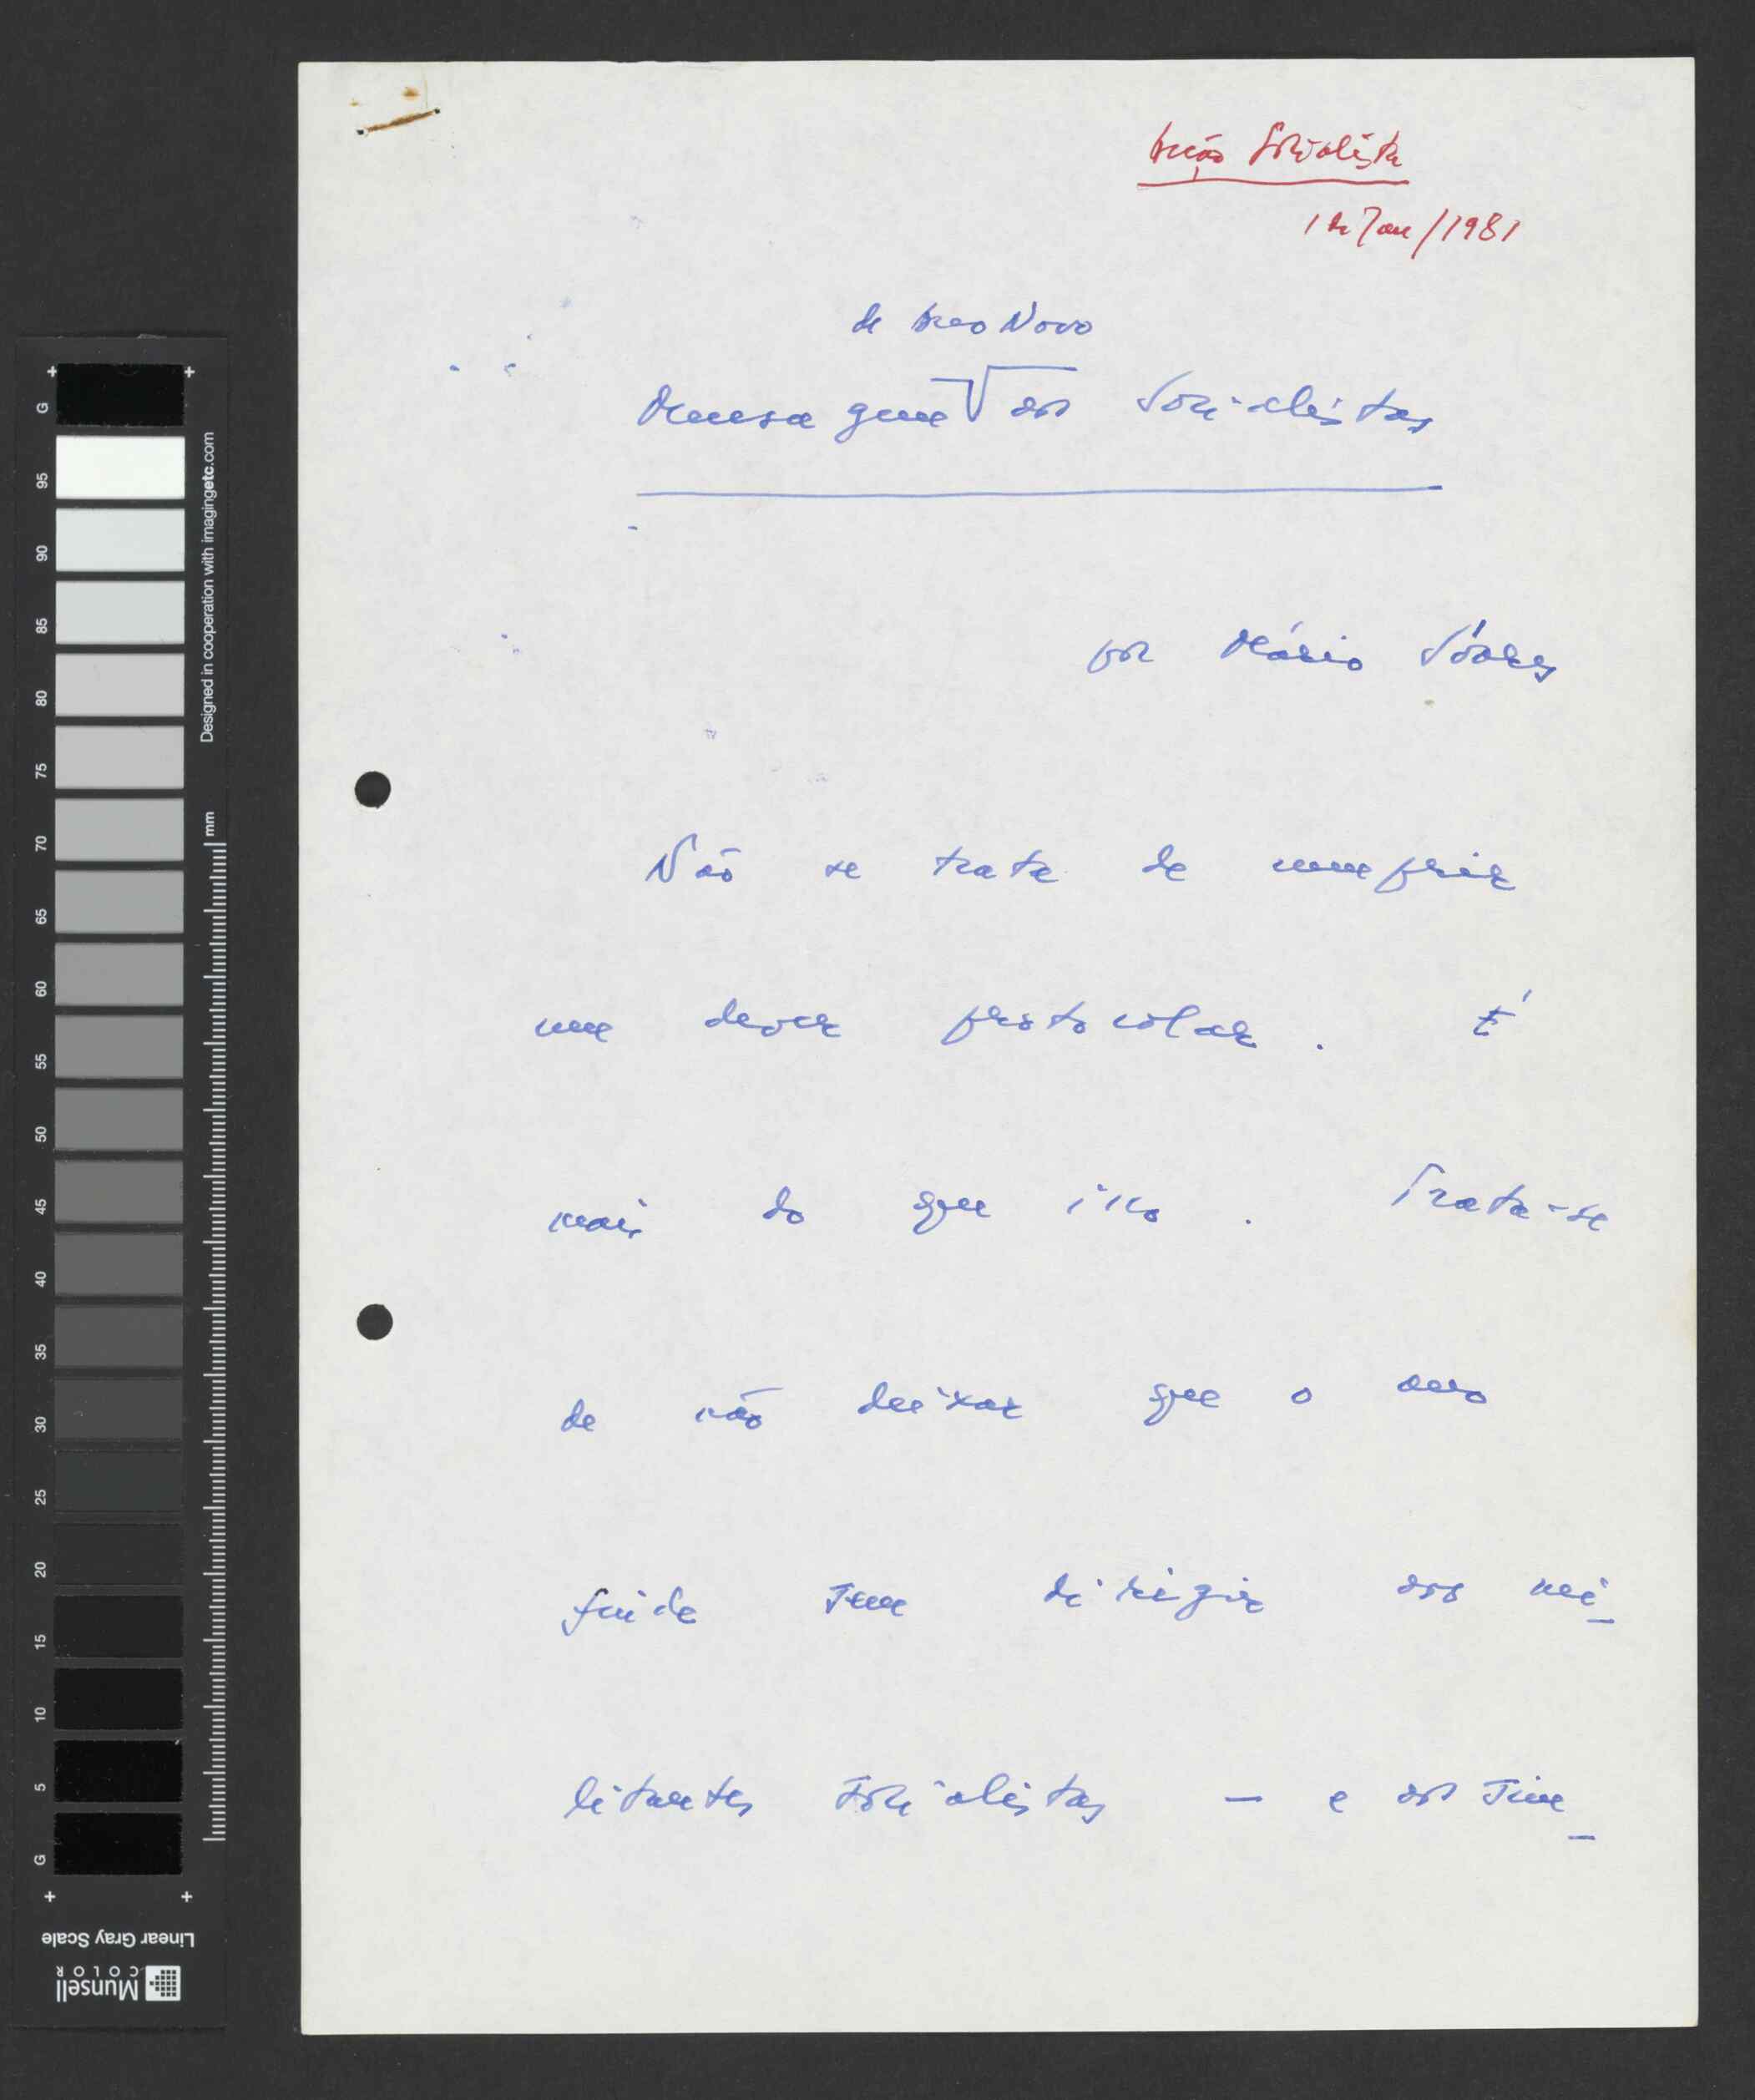 Acção Socialista
1 de Jan/1981
de Ano Novo
Mensagem aos Socialistas
por Mário Soares
Não se trata de cumprir
um dever protocolar. É
mais do que isso. Trata-se
de não deixar que o ano
finde sem dirigir aos mi-
litantes socialistas — e aos sim-
G
95
90
85
80
75
70
65
60
55
50
45
40
35
30
25
20
15
10
5
G
mm
Designed in cooperation with imagingetc.com
Linear Gray Scale
Munsell
COLOR